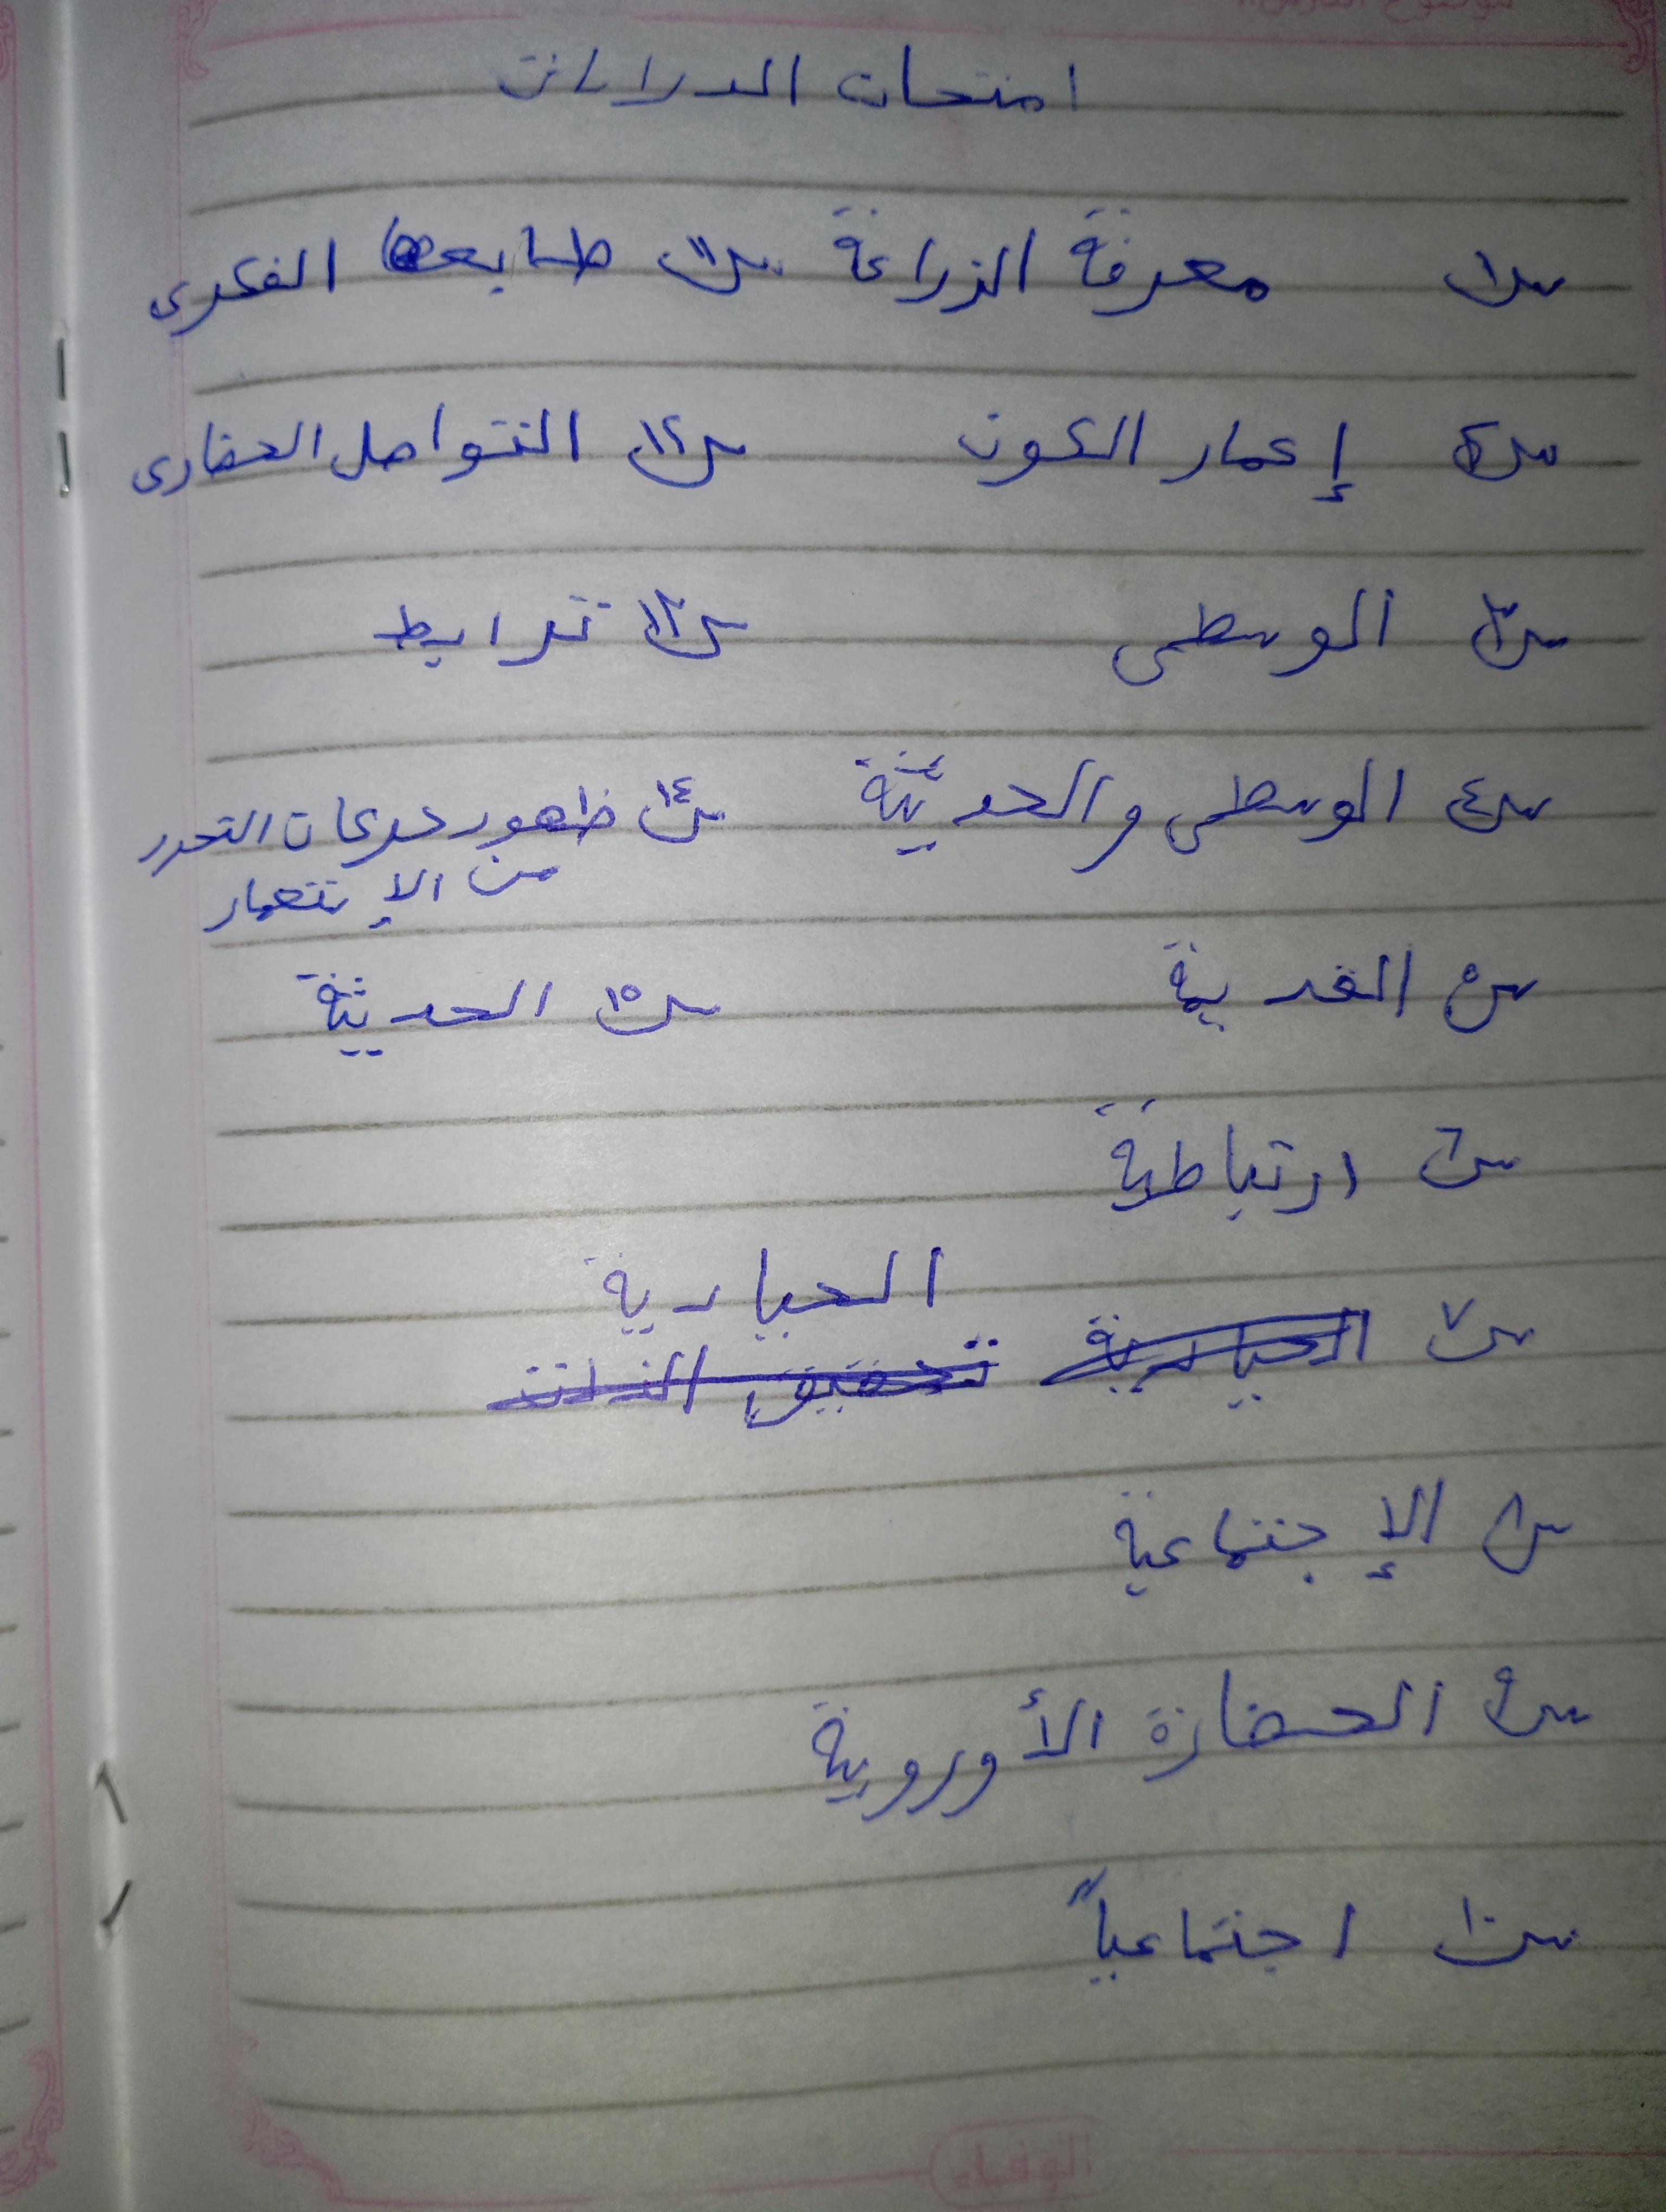 امتحان الدراسات
س١ معرفة الزراعة س١١ طابعها الفكرى
س٢ إعمار الكون س١٢ التواصل الحضارى
س٣ الوسطى س١٣ ترابط
س٤ الوسطى والحديثة س١٤ ظهور حركات التحرر
من الإستعمار
س٥ القديمة س١٥ الحديثة
س٦ ارتباطية
الحيادية
س٧ الحيادية تحقيق الذات
س٨ الإجتماعية
س٩ الحضارة الأوروبية
س١٠ اجتماعياً
الوفاء